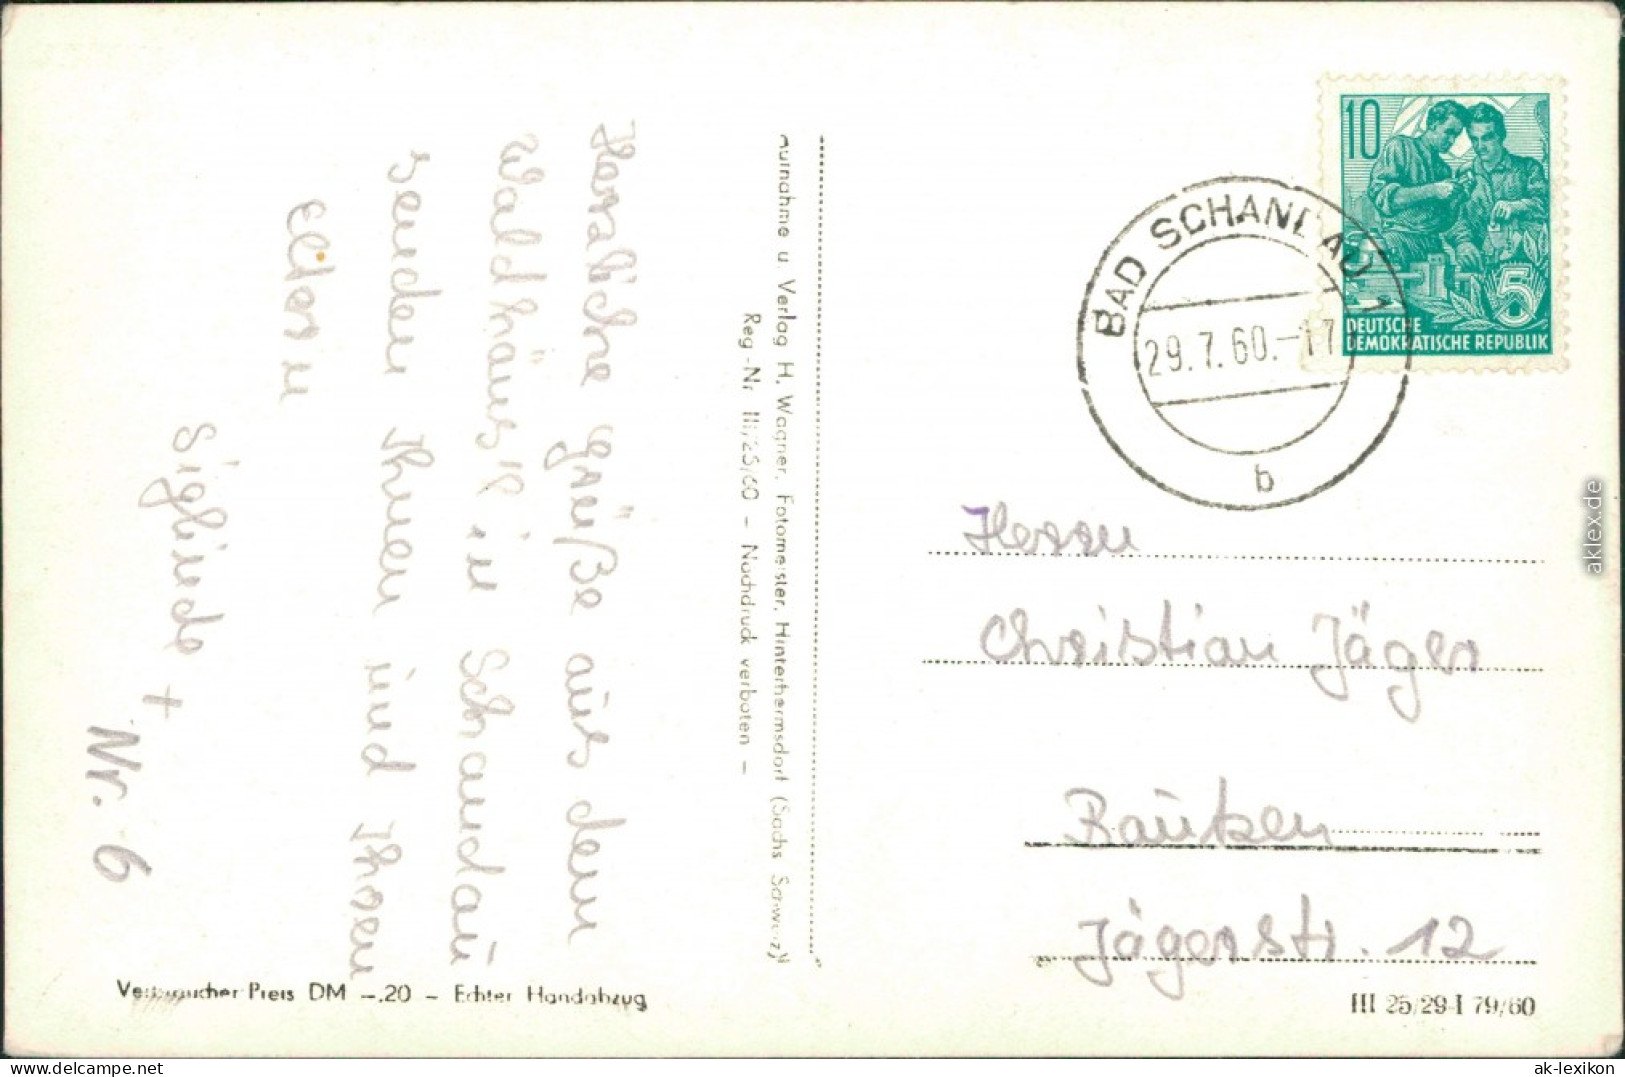 Herzliche Grüße aus dem
Waldhäus'l in Schandau
senden Ihnen und Ihren
Eltern
Siglinde +
Nr. 6
Aufnahme u. Verlag H. Wagner, Fotomeister, Hinterhermsdorf (Sächs Schweiz)
Reg.-Nr. III/25/60 – Nachdruck verboten –
Verbraucher-Preis DM –.20 – Echter Handabzug
10
5
DEUTSCHE
DEMOKRATISCHE REPUBLIK
BAD SCHANDAU 1
29.7.60.-17
b
Herrn
Christian Jäger
Bautzen
Jägerstr. 12
III 25/29-I 79/60
aklex.de
www.delcampe.net
ak-lexikon